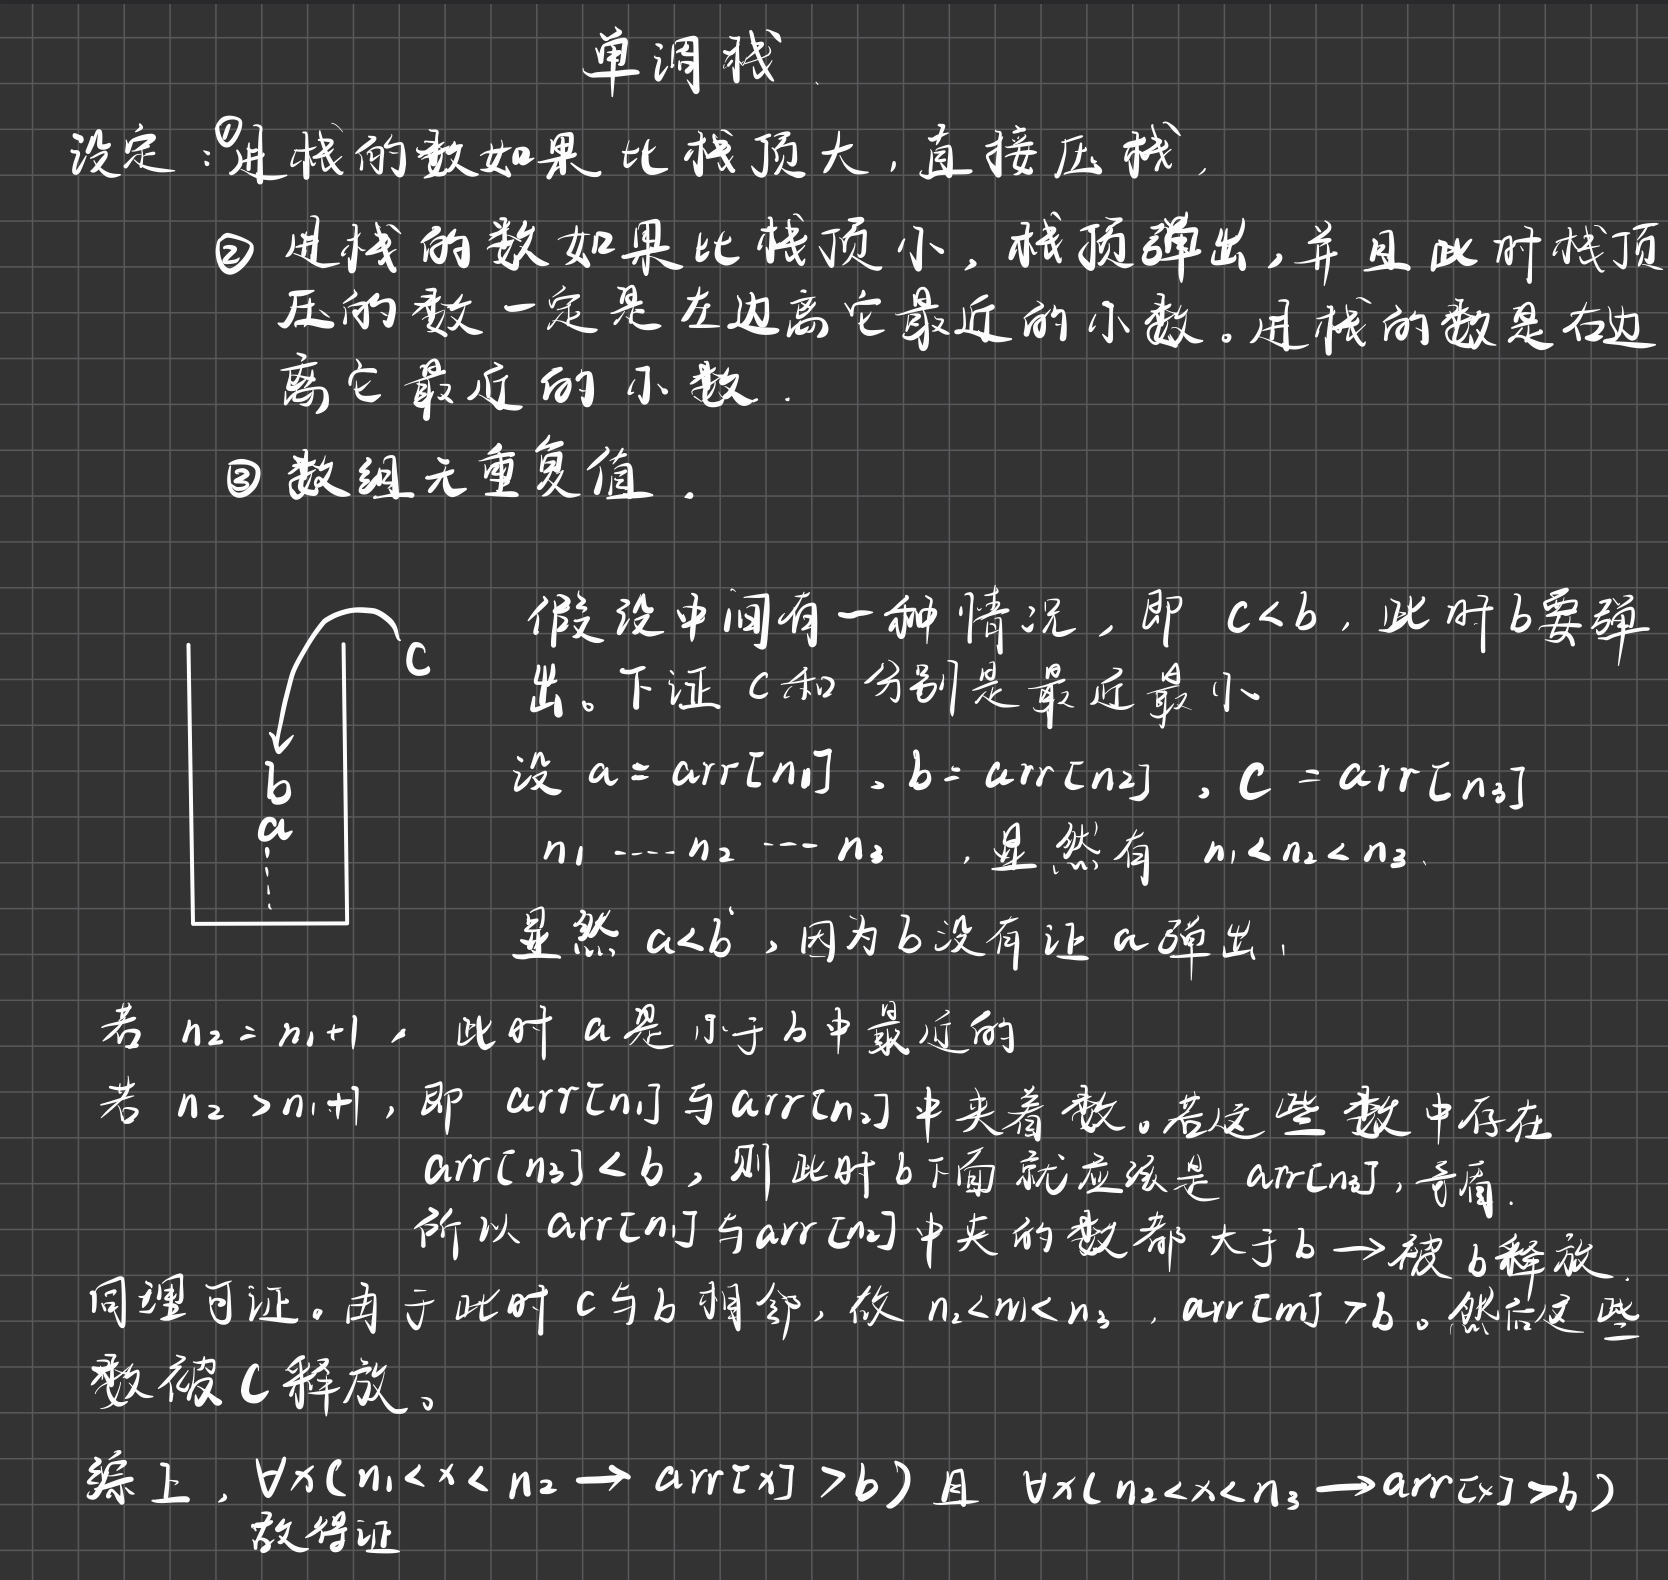 单调栈
设定:①进栈的数如果比栈顶大,直接压栈.
② 进栈的数如果比栈顶小,栈顶弹出,并且此时栈顶
压的数一定是左边离它最近的小数。进栈的数是右边
离它最近的小数.
③ 数组无重复值.
假设中间有一种情况,即 c<b,此时b要弹
出。下证 c和 分别是最近最小
c
b
a
设 a = arr[n1]、b = arr[n2],c = arr[n3]
n1 ---- n2 --- n3 ,显然有 n1<n2<n3.
显然 a<b,因为b没有让a弹出.
若 n2=n1+1,此时 a是小于b中最近的
若 n2>n1+1,即 arr[n1]与arr[n2]中夹着数。若这些数中存在
arr[n3]<b,则此时b下面就应该是 arr[n3],矛盾.
所以 arr[n1]与arr[n2]中夹的数都大于b→被b释放.
同理可证。由于此时c与b相邻,故 n2<m<n3,arr[m]>b。然后这些
数被c释放。
综上,∀x(n1<x<n2→arr[x]>b)且 ∀x(n2<x<n3→arr[x]>b)
故得证